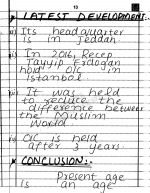 13
LATEST DEVELOPMENT:-
i) Its headquarter
is in Jeddah.
ii) In 2016, Recep
Tayyip Erdogan
hold OIC in
Istanbul.
iii) It was held
to reduce the
difference between
the Muslim
World.
iv) OIC is held
after 3 years.
CONCLUSION:-
Present age
is an age